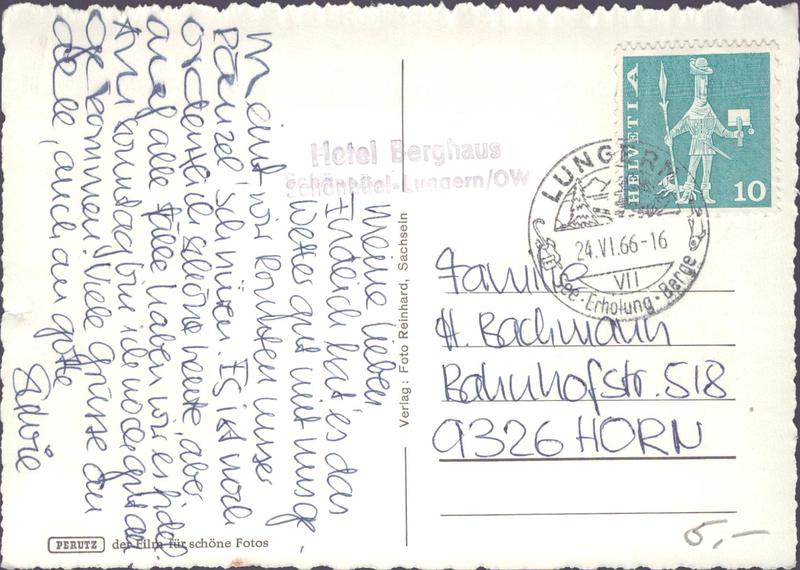 Meine Lieben
Endlich hat's das
Wetter gut mit uns ge-
meint wir konnten unser
schnüren. Es ist noch
ordentlich schöne heute, aber
auf alle Fälle haben wir es fidel,
Am Sonntag bin ich wieder gut
gekommen. Viele Grüsse an
alle, auch an Gotte
Hotel Berghaus
Schönbüel-Lungern/OW
Verlag: Foto Reinhard, Sachseln
PERUTZ der Film für schöne Fotos
HELVETIA
10
LUNGERN
24.VI.66-16
VII
See·Erholung·Berge
Familie
H. Bachmann
Bahnhofstr. 518
9326 HORN
5,-